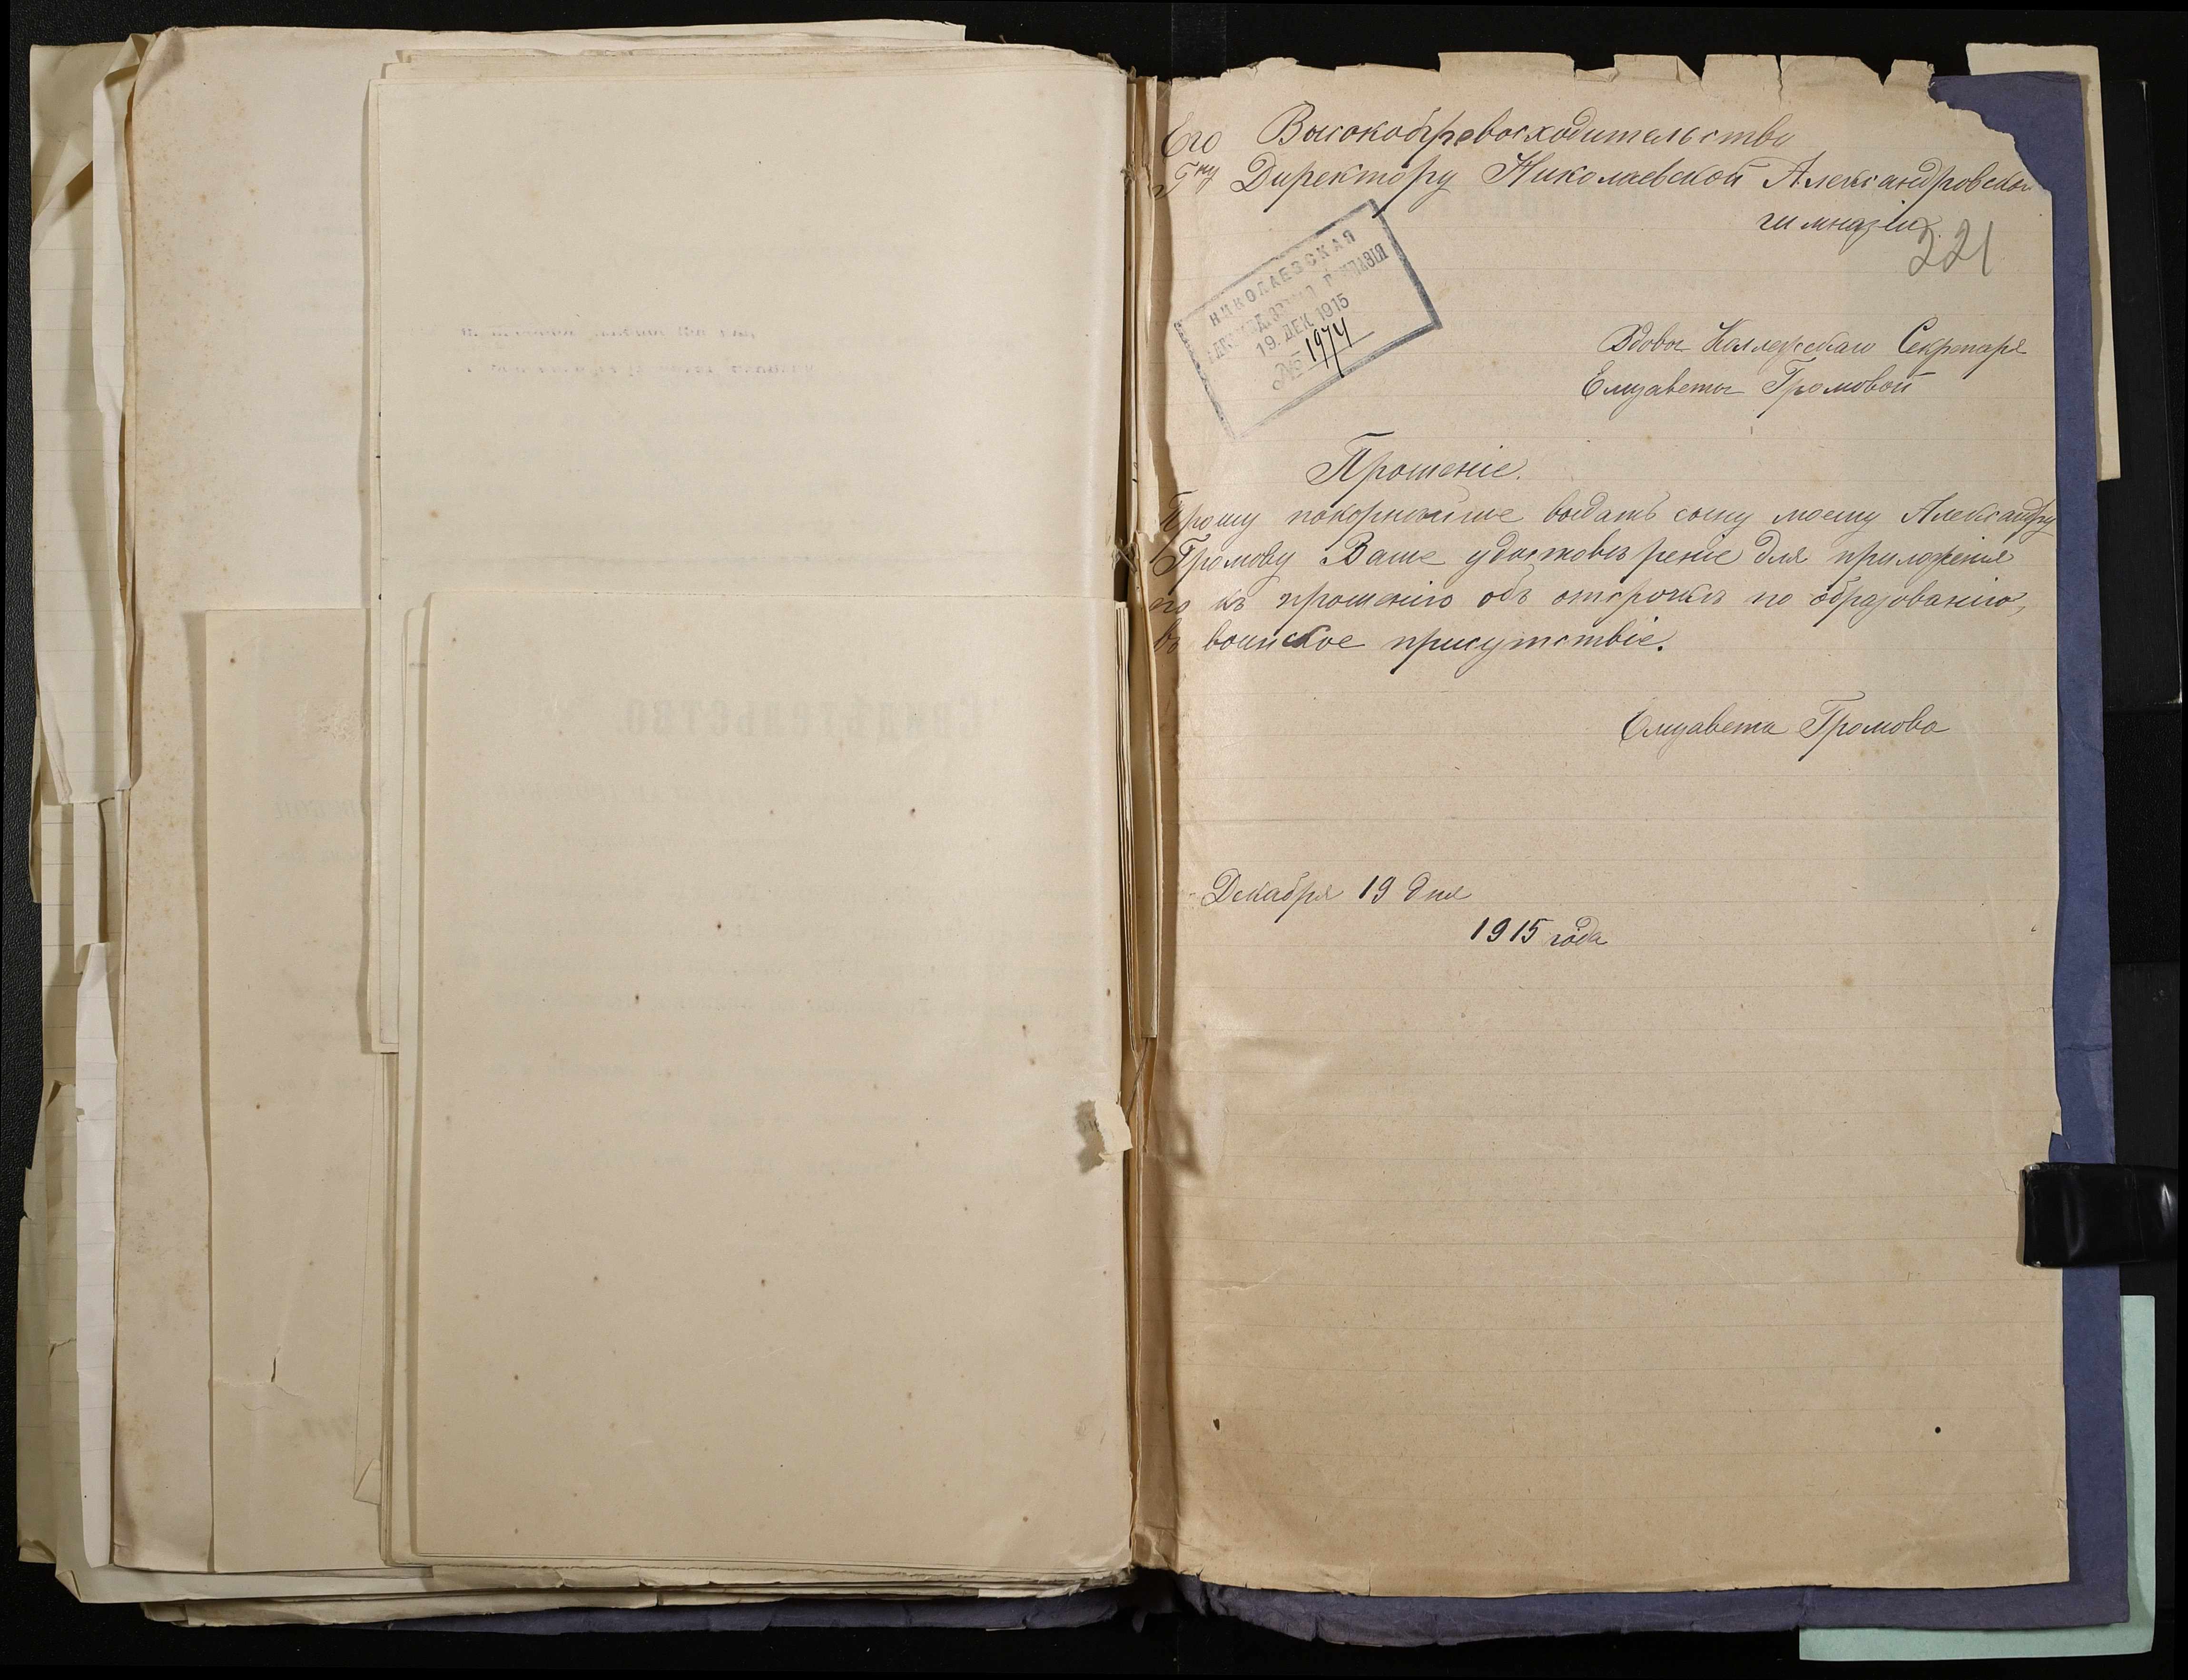 Его Высокопревосходительству
Г^ну Директору Николаевской Александровской
гимназіи.
221
НИКОЛАЕВСКАЯ
АЛЕКСАНДРОВСКАЯ ГИМНАЗІЯ
19. ДЕК. 1915
№ 1974
Вдовы Коллежскаго Секртаря
Елизаветы Громовой
Прошеніе.
Прошу покорнѣйше выдать сыну моему Александру
Громову Ваше удостовѣреніе для приложенія
его къ прошенію объ отсрочкѣ по образованію,
въ воинское присутствіе.
Елизавета Громова
Декабря 19 дня
1915 года